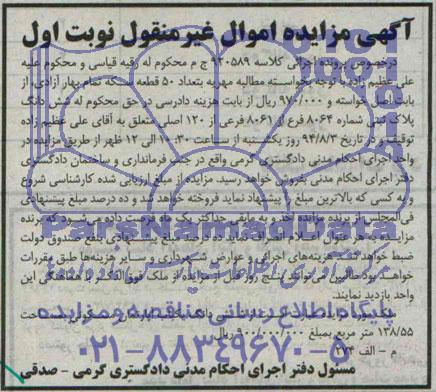 آگهی مزایده اموال غیرمنقول نوبت اول
درخصوص پرونده اجرائی کلاسه ۹۲۰۵۸۹ ج م محکوم له رقیه قیاسی و محکوم علیه
علی عظیم زاده با توجه بخواسته مطالبه مهریه بتعداد ۵۰ قطعه سکه تمام بهار آزادی، از
بابت اصل خواسته و ۹۷۰/۰۰۰ ریال از بابت هزینه دادرسی در حق محکوم له شش دانگ
پلاک ثبتی شماره ۸۰۶۴ فرع از ۸۰۶۱ فرعی از ۱۲۰ اصلی متعلق به آقای علی عظیم زاده
توقیف و در تاریخ ۹۴/۸/۳ روز یکشنبه از ساعت ۱۰:۳۰ الی ۱۲ ظهر از طریق مزایده در
واحد اجرای احکام مدنی دادگستری گرمی واقع در جنب فرمانداری و ساختمان دادگستری
دفتر اجرای احکام مدنی بفروش خواهد رسید. مزایده از مبلغ ارزیابی شده کارشناسی شروع
و به کسی که بالاترین مبلغ را پیشنهاد نماید فروخته خواهد شد و ده درصد مبلغ پیشنهادی
فی‌المجلس از برنده مزایده اخذ و به مابقی حداکثر یک ماه فرصت داده می‌شود که برنده
مزایده به هر عنوان اعلام انصراف نماید ده درصد مبلغ پیشنهادی بنفع صندوق دولت
ضبط خواهد شد. هزینه‌های اجرای و عوارض شهرداری و سایر هزینه‌ها طبق مقررات
خواهد بود طالبین می‌توانند پنج روز قبل از مزایده از ملک فوق‌الذکر با هماهنگی این
واحد بازدید نمایند.
۱۳۸/۵۵ متر مربع بمبلغ ۹۰۰/۰۰۰/۰۰۰ ریال
م - الف ۲۷۴
مسئول دفتر اجرای احکام مدنی دادگستری گرمی - صدقی
ParsNamadData
پایگاه اطلاع رسانی مناقصه و مزایده
۰۲۱-۸۸۳۴۹۶۷۰-۵